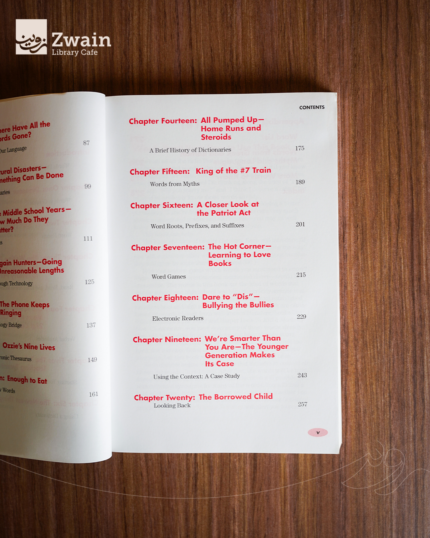 زوين
Zwain
Library Cafe
ere Have All the
rds Gone?
Language
87
ural Disasters—
mething Can Be Done
99
Middle School Years—
w Much Do They
tter?
111
gain Hunters—Going
Unreasonable Lengths
ough Technology
125
The Phone Keeps
Ringing
ology Bridge
137
Ozzie's Nine Lives
ronic Thesaurus
149
Enough to Eat
Words
161
CONTENTS
Chapter Fourteen: All Pumped Up—
Home Runs and
Steroids
A Brief History of Dictionaries 175
Chapter Fifteen: King of the #7 Train
Words from Myths 189
Chapter Sixteen: A Closer Look at
the Patriot Act
Word Roots, Prefixes, and Suffixes 201
Chapter Seventeen: The Hot Corner—
Learning to Love
Books
Word Games 215
Chapter Eighteen: Dare to “Dis”—
Bullying the Bullies
Electronic Readers 229
Chapter Nineteen: We're Smarter Than
You Are—The Younger
Generation Makes
Its Case
Using the Context: A Case Study 243
Chapter Twenty: The Borrowed Child
Looking Back 257
v